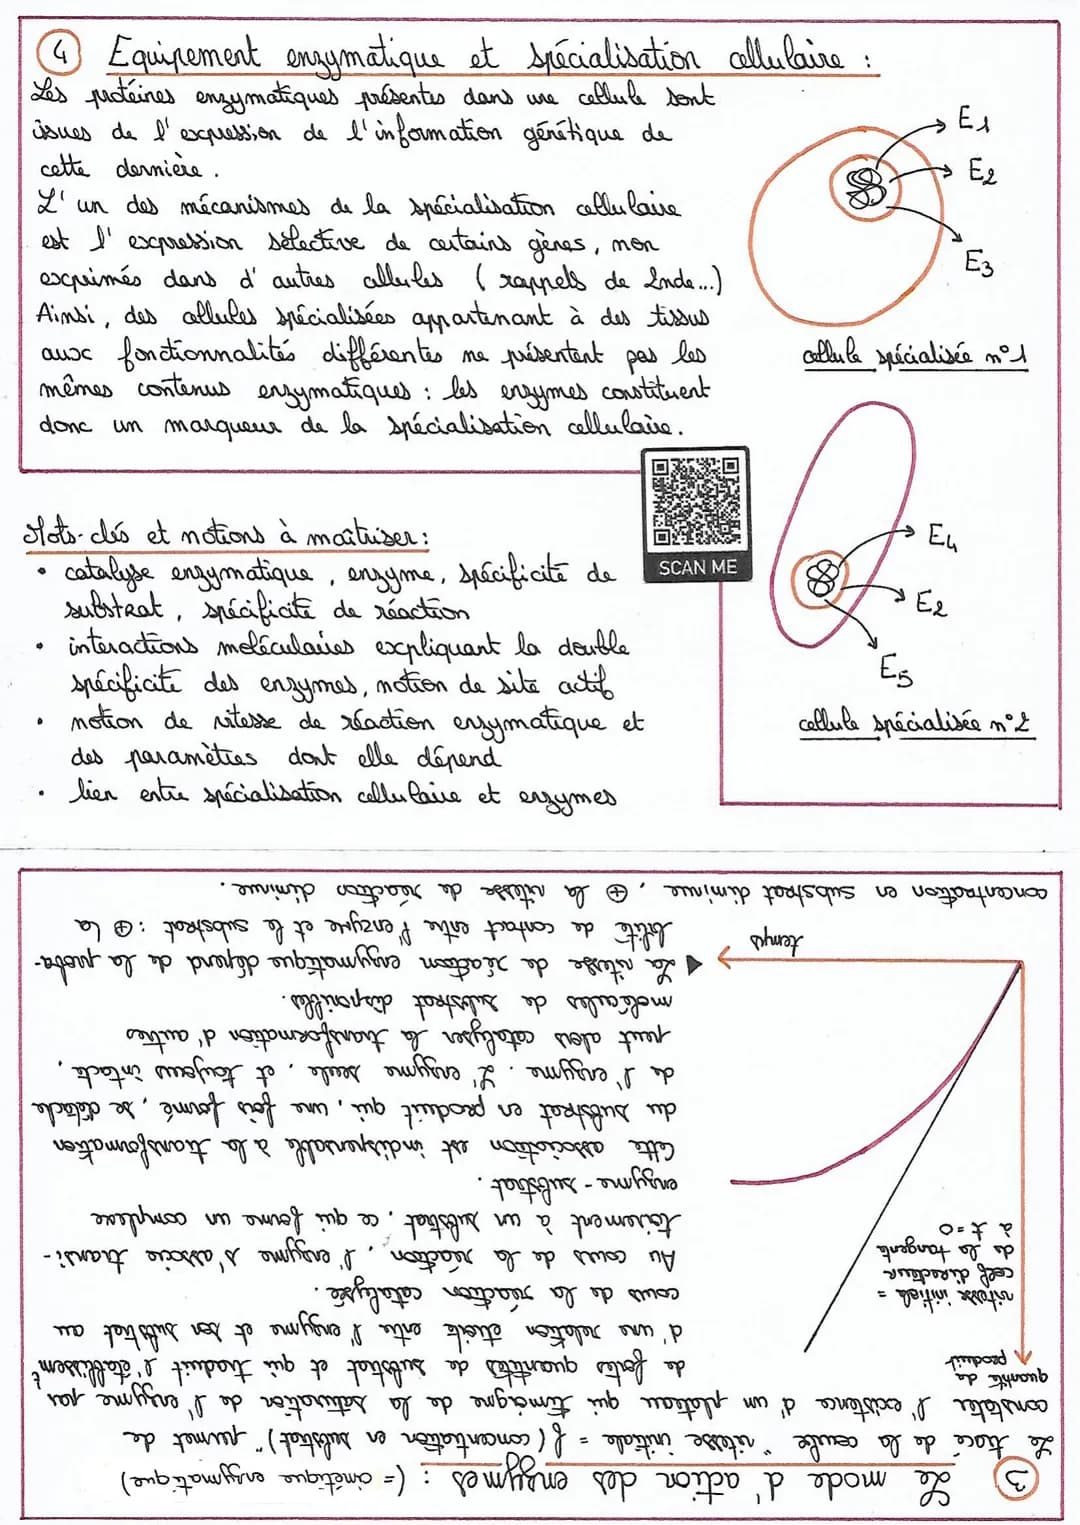 4 Equipement enzymatique et spécialisation cellulaire :
Les protéines enzymatiques présentes dans une cellule sont
issues de l'expression de l'information génétique de
cette dernière.
L'un des mécanismes de la spécialisation cellulaire
est l'expression sélective de certains gènes, non
exprimés dans d'autres cellules (rappels de 2nde...)
Ainsi, des cellules spécialisées appartenant à des tissus
aux fonctionnalités différentes ne présentent pas les
mêmes contenus enzymatiques : les enzymes constituent
donc un marqueur de la spécialisation cellulaire.
E1
E2
E3
cellule spécialisée n°1
E4
E2
E5
cellule spécialisée n°2
SCAN ME
Mots-clés et notions à maîtriser :
• catalyse enzymatique, enzyme, spécificité de
substrat, spécificité de réaction
• interactions moléculaires expliquant la double
spécificité des enzymes, notion de site actif
• notion de vitesse de réaction enzymatique et
des paramètres dont elle dépend
• lien entre spécialisation cellulaire et enzymes
3 Le mode d'action des enzymes : (= cinétique enzymatique)
Le tracé de la courbe "vitesse initiale = f (concentration en substrat)" permet de
constater l'existence d'un plateau qui témoigne de la saturation de l'enzyme par
de fortes quantités de substrat et qui traduit l'établissemt
d'une relation étroite entre l'enzyme et son substrat au
cours de la réaction catalysée.
Au cours de la réaction, l'enzyme s'associe transi-
toirement à un substrat, ce qui forme un complexe
enzyme-substrat.
Cette association est indispensable à la transformation
du substrat en produit qui, une fois formé, se détache
de l'enzyme. L'enzyme seule, et toujours intacte,
peut alors catalyser la transformation d'autres
molécules de substrat disponibles.
▶ La vitesse de réaction enzymatique dépend de la proba-
bilité de contact entre l'enzyme et le substrat : ⊕ la
concentration en substrat diminue, ⊕ la vitesse de réaction diminue.
quantité de
produit
vitesse initiale =
coef directeur
de la tangente
à t=0
temps